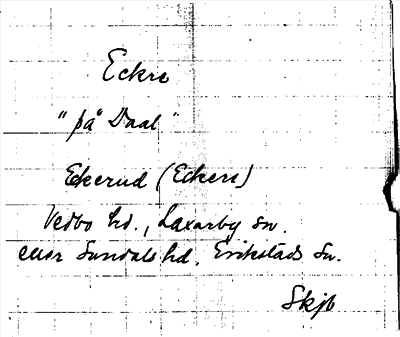 Eckre
"på Daal"
Eckerud (Eckers)
Vedbo hd., Laxarby sn.
eller Sundals hd. Erikstads sn.
Skjb